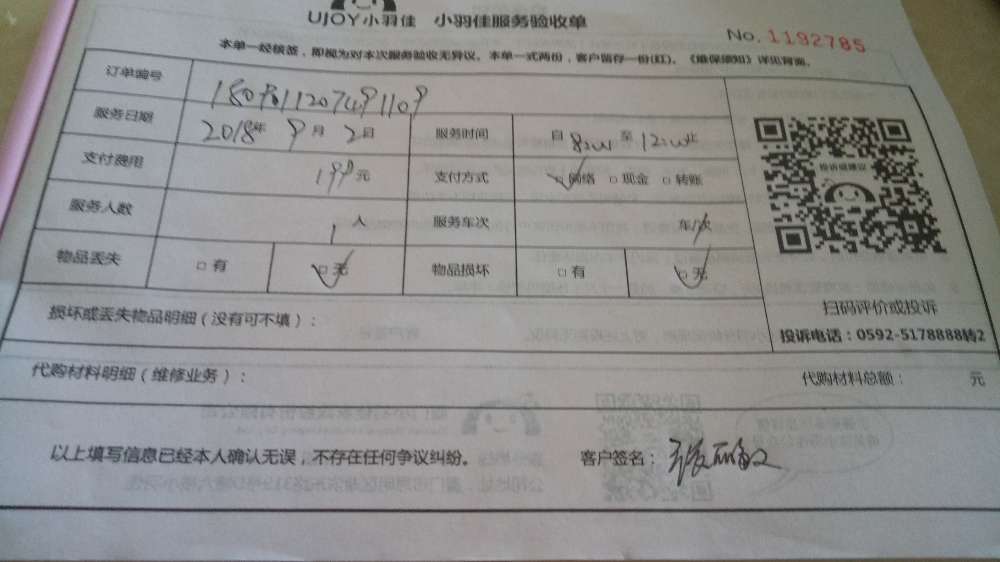 UJOY小羽佳 小羽佳服务验收单
No.1192785
本单一经核签，即视为对本次服务验收无异议。本单一式两份，客户留存一份(红)。《维保须知》详见背面。
订单编号
服务日期 2018年 9月 2日 服务时间 自 8:00 至 12:00止
支付费用 199元 支付方式 □网络 □现金 □转账
服务人数 1人 服务车次 车/次
物品丢失 □有 □无 物品损坏 □有 □无
投诉或建议
扫码评价或投诉
投诉电话：0592-5178888转2
损坏或丢失物品明细（没有可不填）：
代购材料明细（维修业务）： 代购材料总额： 元
以上填写信息已经本人确认无误，不存在任何争议纠纷。 客户签名：张丽敏